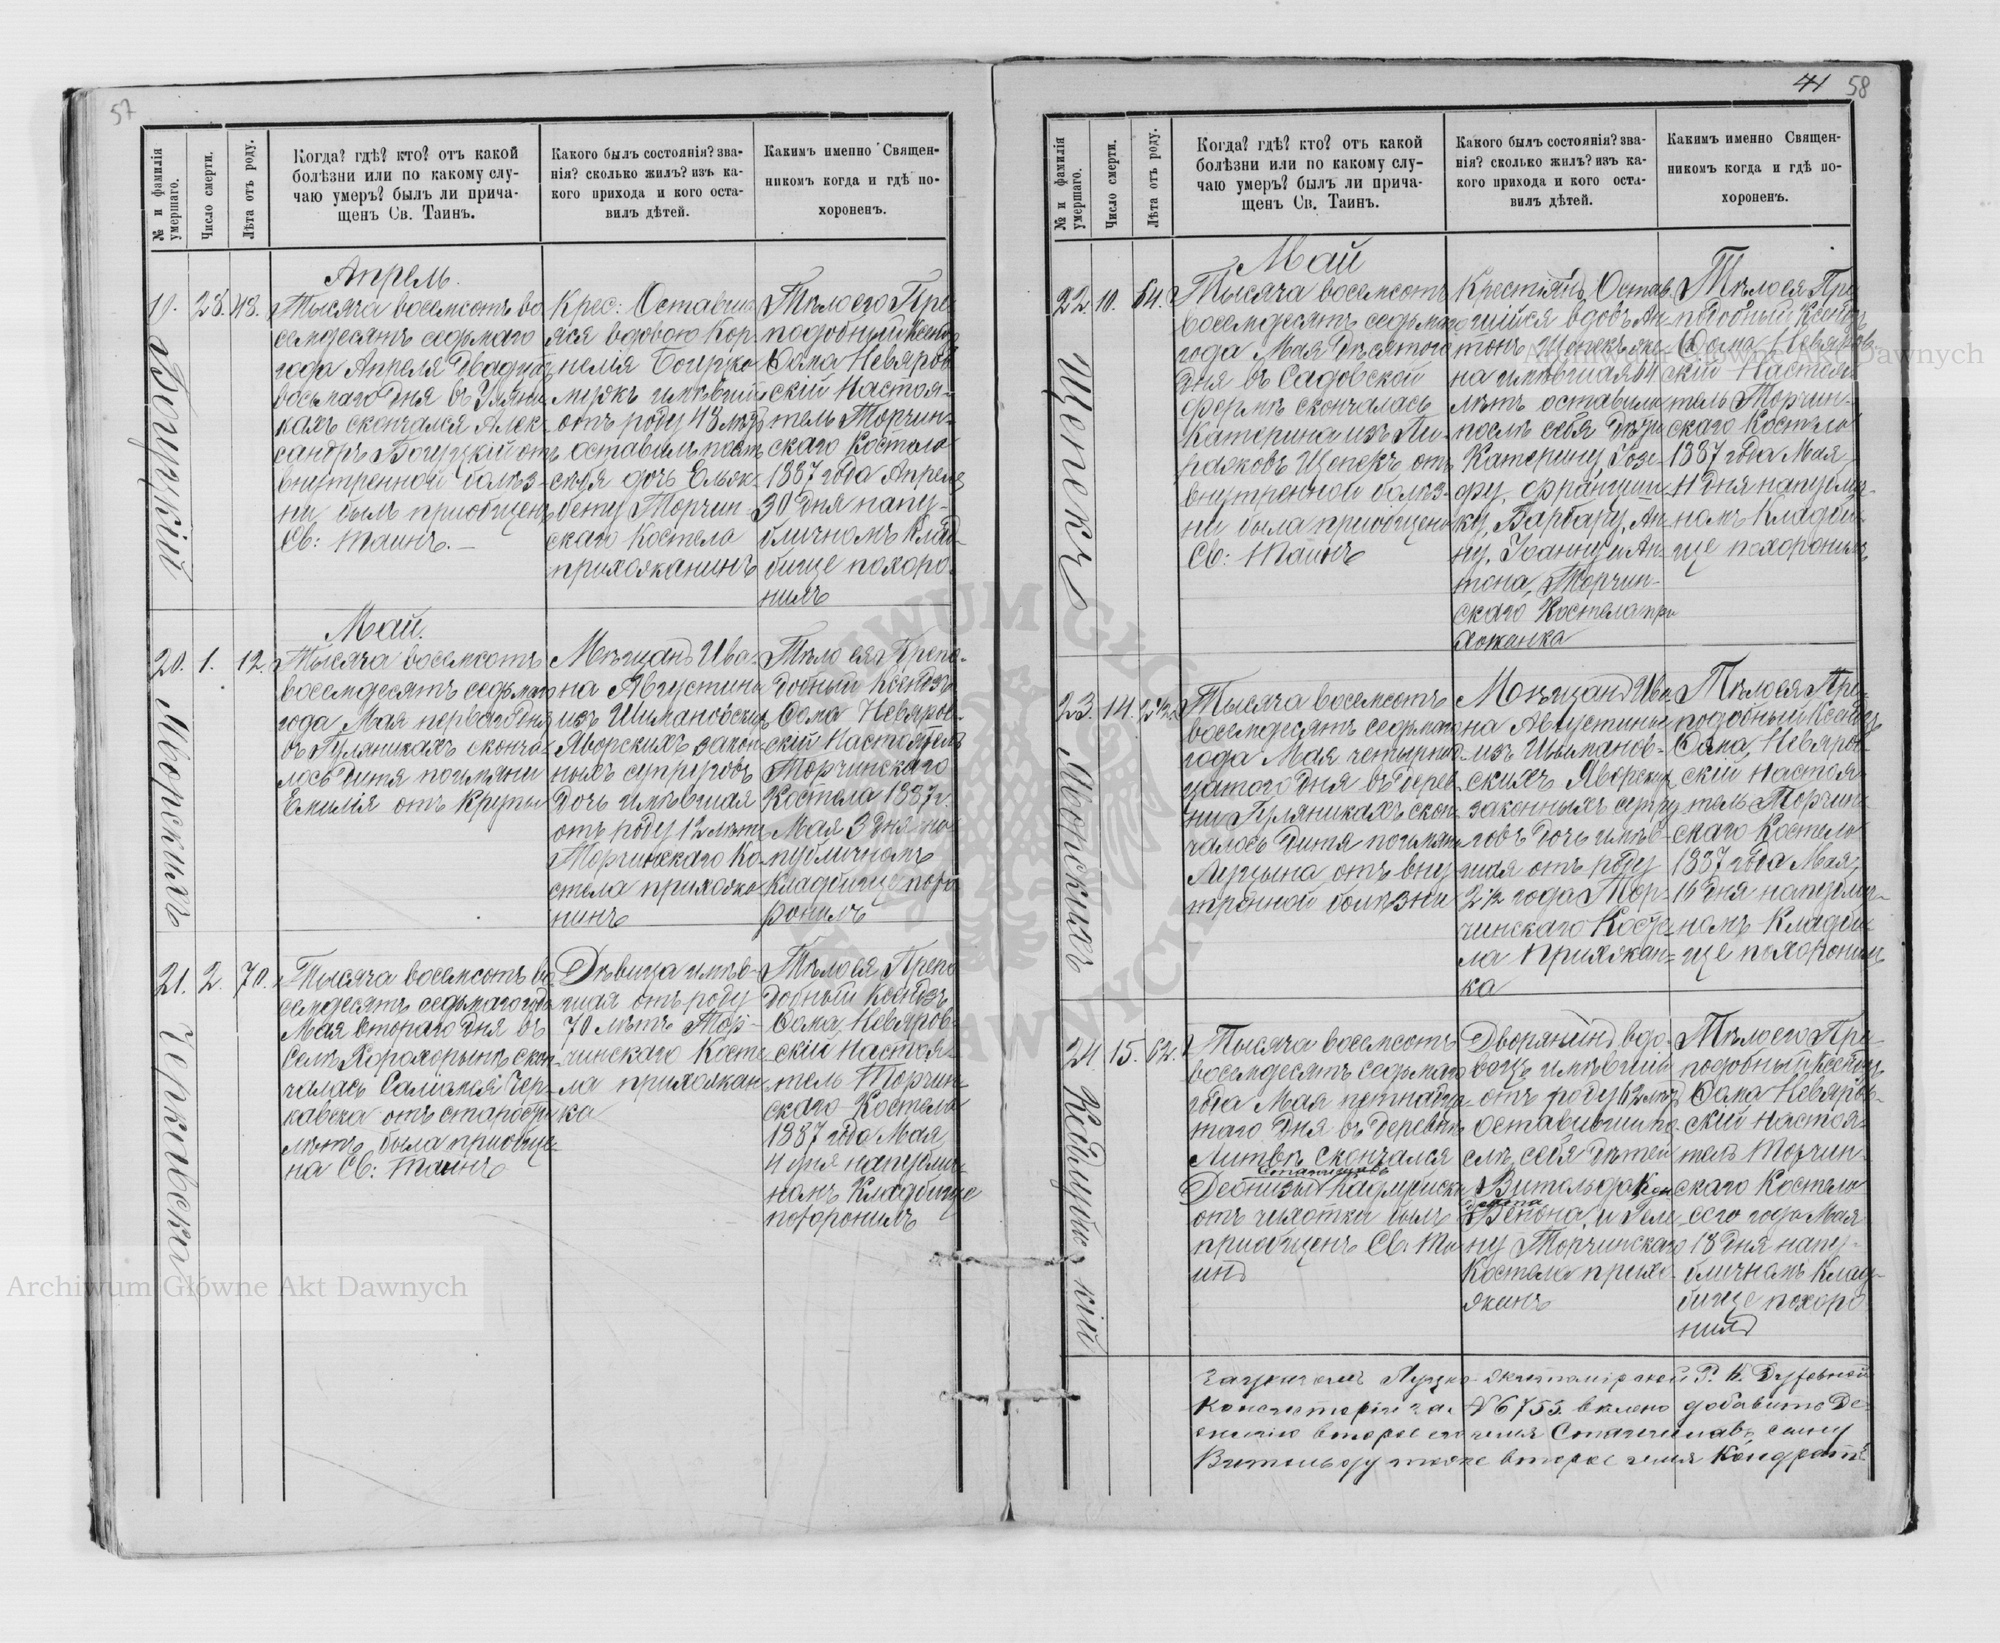 57
№ и фамилія умершаго.
Число смерти.
Лѣта отъ роду.
Когда? гдѣ? кто? отъ какой
болѣзни или по какому слу-
чаю умеръ? былъ ли прича-
щенъ Св. Таинъ.
Какого былъ состоянія? зва-
нія? сколько жилъ? изъ ка-
кого прихода и кого оста-
вилъ дѣтей.
Какимъ именно Священ-
никомъ когда и гдѣ по-
хороненъ.
Апрель.
19. 28. 48.
Богуцкій
Тысяча восемсотъ во
семдесятъ седьмаго
года Апреля двадцать
восьмаго дня въ
кахъ скончался Алек-
сандръ Богуцкій отъ
внутренной болѣз-
ни былъ приобщенъ
Св: Таинъ. —
Крес: Оставив
яся вдовою Кор-
нелія Богуцко
мужъ имѣвшій
отъ роду 48 лѣтъ
оставилъ послѣ
себя дочь Ельж-
бету Торчин-
скаго Костела
прихожанинъ
Тѣло его Пре
подобный Ксендзъ
Ѳома Невяров
скій Настоя-
тель Торчин-
скаго Костела
1887 года Апреля
30 дня на пу-
бличномъ клад-
бище похоро-
нилъ
Май.
20. 1. 12.
Яворскихъ
Тысяча восемсотъ
восемдесятъ седьмаго
года Мая перваго дня
въ Гуляникахъ сконча
лась дитя по имяни
Емилія отъ крупы
Мѣщанъ Ива-
на Августины
изъ Шимановскихъ
Яворскихъ закон-
ныхъ супруговъ
дочь имѣвшая
отъ роду 12 лѣтъ
Торчинскаго Ко-
стела прихожа
нинъ
Тѣло ея Препо-
добный Ксендзъ
Ѳома Невяров-
скій Настоятель
Торчинскаго
Костела 1887 г.
Мая 3 дня на
публичномъ
Кладбище похо
ронилъ
21. 2. 70.
Чернавска
Тысяча восемсотъ во
семдесятъ седьмаго года
Мая втораго дня въ
селѣ Хорохорынѣ скон-
чалась Салимія Чер-
кавска отъ старости
лѣтъ была приобще-
на Св: Таинъ
Дѣвица имѣв-
шая отъ роду
70 лѣтъ Тор-
чинскаго Косте
ла прихожан
ка
Тѣло ея Препо
добный Ксендзъ
Ѳома Невяров-
скій Настоя-
тель Торчин-
скаго Костела
1887 года Мая
4 дня на публи-
номъ Кладбище
похоронилъ
41 58
№ и фамилія умершаго.
Число смерти.
Лѣта отъ роду.
Когда? гдѣ? кто? отъ какой
болѣзни или по какому слу-
чаю умеръ? былъ ли прича-
щенъ Св. Таинъ.
Какого былъ состоянія? зва-
нія? сколько жилъ? изъ ка-
кого прихода и кого оста-
вилъ дѣтей.
Какимъ именно Священ-
никомъ когда и гдѣ по-
хороненъ.
Май
22. 10. 64.
Щепекъ
Тысяча восемсотъ
восемдесятъ седьмаго
года Мая десятого
дня въ Садовской
формѣ скончалась
Катерина изъ Пи-
раяковъ Щепекъ отъ
внутренной болѣз-
ни была приобщена
Св: Таинъ
Крестьянъ Остав
шійся вдовъ Ан
тонъ Щепекъ же-
на имѣвшая 64
лѣтъ оставила
послѣ себя дѣти
Катерину, Юзе-
фу, Францишку,
Барбару, Ан-
ну, Іоанну и Ан-
тона, Торчин-
скаго Костела при
хожанка
Тѣло ея Пре
подобный Ксендзъ
Ѳома Невяров-
скій Настоя-
тель Торчин-
скаго Костела
1887 года Мая
11 дня на публич-
номъ кладби-
ще похоронилъ
23. 14. 2½
Яворскихъ
Тысяча восемсотъ
восемдесятъ седьмаго
года Мая четырнад-
цатого дня въ дерев-
ни Гуляникахъ скон-
чалось дитя по имяни
Луцына отъ вну
тренной болѣзни
Мѣщанъ Ива
на Августины
изъ Шиманов-
скихъ Яворскихъ
законныхъ супру
говъ дочь имѣв-
шая отъ роду
2½ года Тор-
чинскаго Косте-
ла Прихожан-
ка
Тѣло ея Пре-
подобный Ксендзъ
Ѳома Невяров-
скій Настоя-
тель Торчин-
скаго Костела
1887 года Мая
16 дня на публич-
номъ Кладби-
ще похоронилъ
24. 15. 62.
Тысяча восемсотъ
восемдесятъ седьмаго
года Мая пятнадца-
таго дня въ деревнѣ
Литвѣ скончался
Станиславъ
Деонизый
отъ чихотки былъ
приобщенъ Св. Та
инъ
Дворянинъ вдо-
вецъ имѣвшій
отъ роду 62 лѣтъ
оставившій по
слѣ себя дѣтей
Витольда Кон
драта
Зенона, и Геле
ну Торчинскаго
Костела прихо-
жанъ
Тѣло его Пре-
подобный Ксендзъ
Ѳома Невяров-
скій Настоя-
тель Торчин-
скаго Костела
сего года Мая
18 дня на пу-
бличномъ Клад-
бище похоро
нилъ
Луцко-Житомірской Р. К. Духовной
Консисторіи за № 6753. велено добавить Де-
онизію второе его имя Станиславъ, сыну
Витольду тоже второе имя Кондратъ
Archiwum Główne Akt Dawnych
Archiwum Główne Akt Dawnych